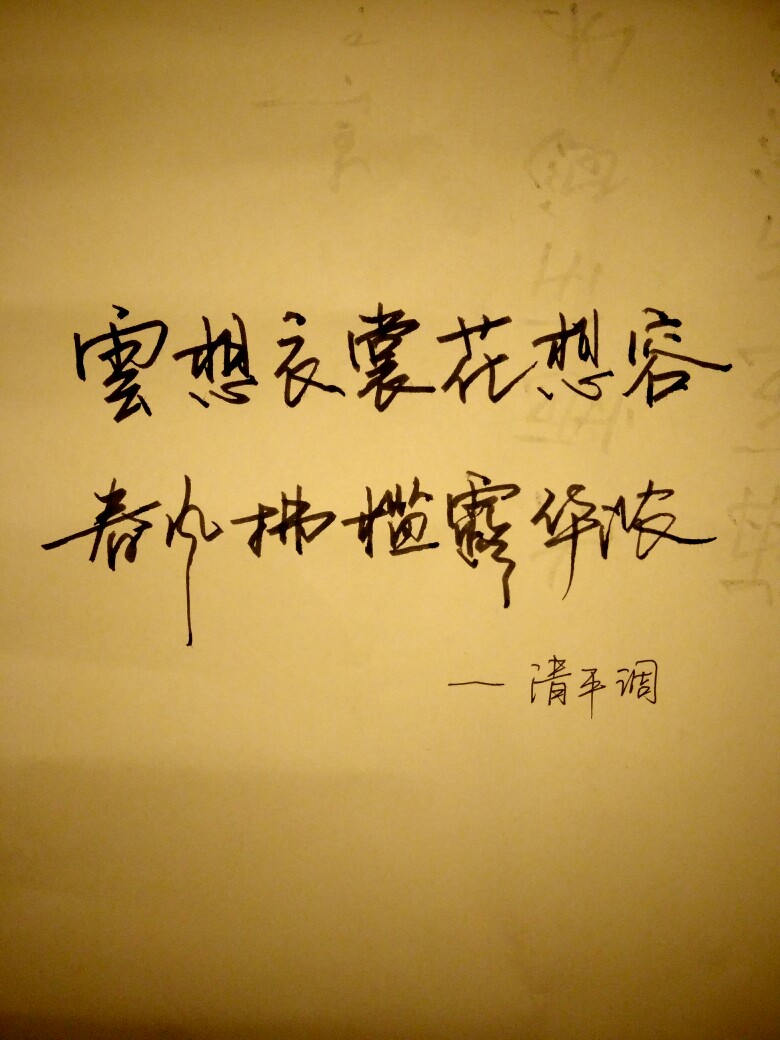 雲想衣裳花想容
春风拂槛露华浓
— 清平调